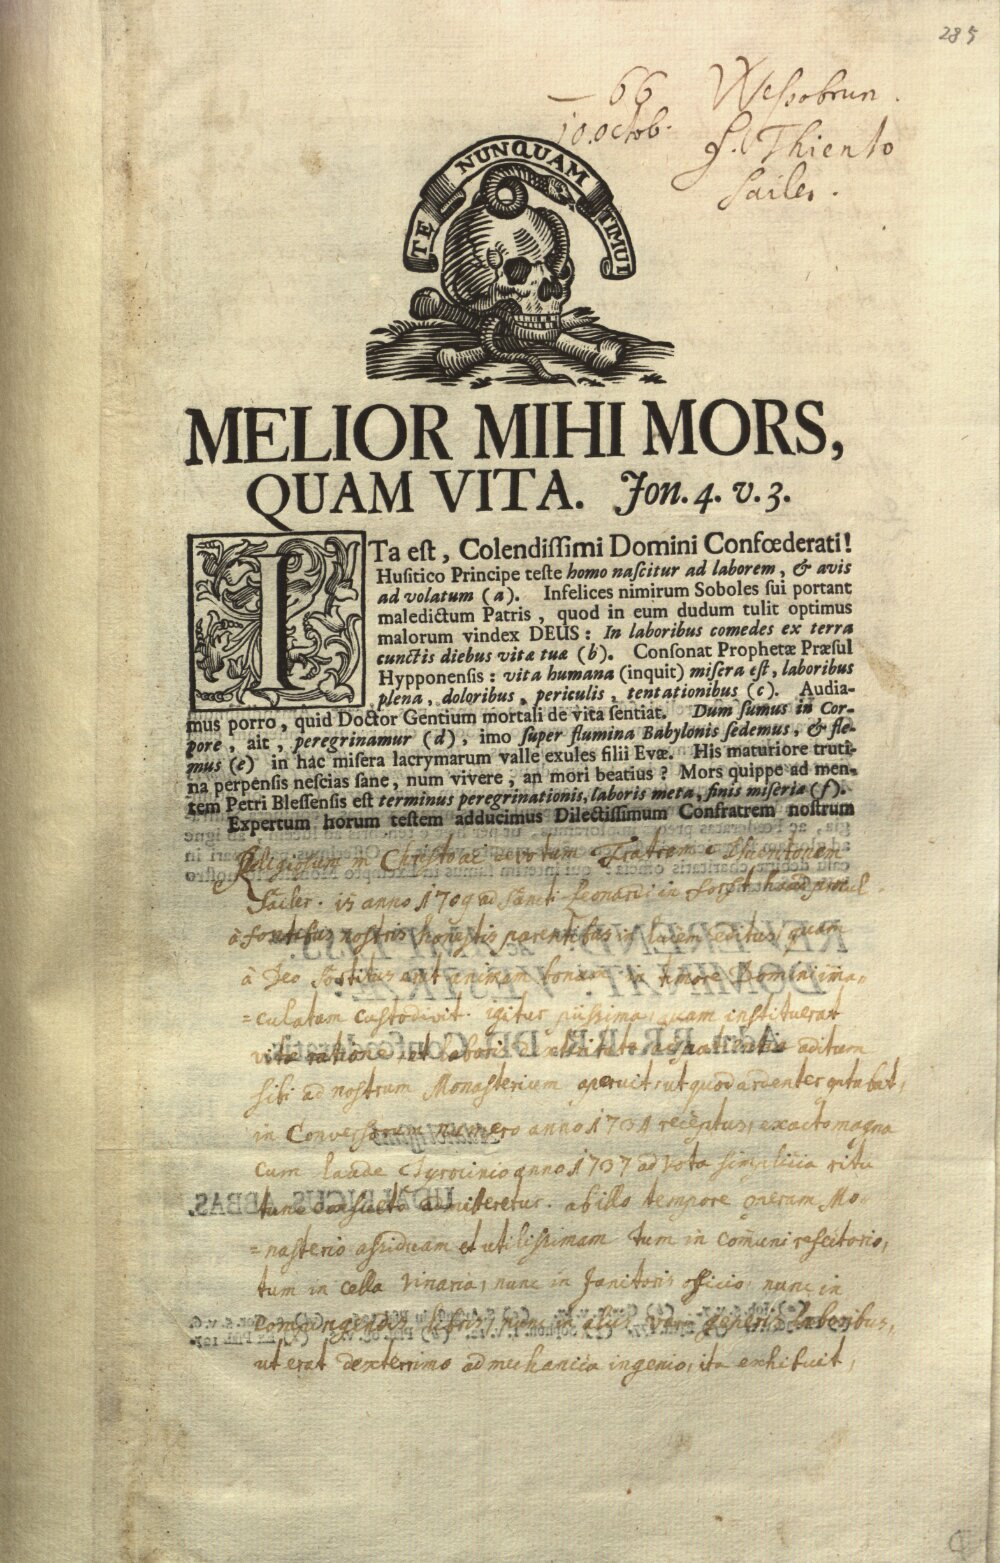 285
— 66 Wessobrun.
10. octob. F. Thiento
Sailer.
TE NUNQUAM TIMUI
MELIOR MIHI MORS,
QUAM VITA. Jon. 4. v. 3.
ITa est, Colendissimi Domini Confœderati!
Husitico Principe teste homo nascitur ad laborem, & avis
ad volatum (a). Infelices nimirum Soboles sui portant
maledictum Patris, quod in eum dudum tulit optimus
malorum vindex DEUS: In laboribus comedes ex terra
cunctis diebus vitæ tuæ (b). Consonat Prophetæ Præsul
Hypponensis: vita humana (inquit) misera est, laboribus
plena, doloribus, periculis, tentationibus (c). Audia-
mus porro, quid Doctor Gentium mortali de vita sentiat. Dum sumus in Cor-
pore, ait, peregrinamur (d), imo super flumina Babylonis sedemus, & fle-
mus (e) in hac misera lacrymarum valle exules filii Evæ. His maturiore truti-
na perpensis nescias sane, num vivere, an mori beatius? Mors quippe ad men-
tem Petri Blessensis est terminus peregrinationis, laboris meta, finis miseriæ (f).
Expertum horum testem adducimus Dilectissimum Confratrem nostrum
Religiosum in Christo ac devotum Fratrem Thientonem
Sailer. is anno 1709 ad Sancti Leonardi in forst haud procul
à fontibus nostris honestis parentibus in lucem editus, quam
à Deo sortitus erat animam bonam in timore Domini im̄a-
=culatam custodivit. igitur piissima, quam instituerat
vitæ ratione, et laboris aditum
sibi ad nostrum Monasterium aperuit, ut quod ardenter optabat,
in Conversorum numero anno 1731 receptus, exacto magna
cum laude Tyrocinio anno 1737 ad vota simplicia ritu
tunc consueto admitteretur. ab illo tempore operam Mo-
=nasterio assiduam et utilissimam tum in com̄uni refectorio,
tum in cella vinaria, nunc in Janitoris officio, nunc in
compingendis libris, nunc in aliis varii generis laboribus,
ut erat dexterrimo ad mechanica ingenio, ita exhibuit,